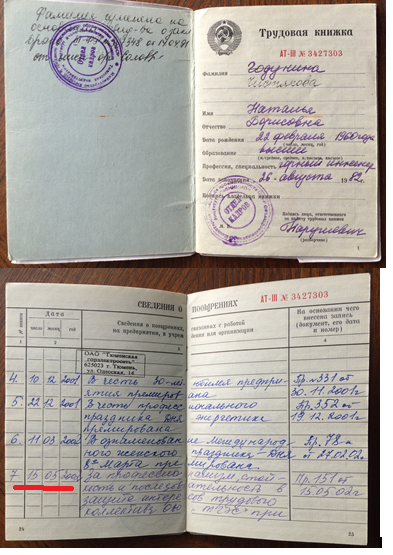 Фамилия изменена на
от 170491
ОТДЕЛ
КАДРОВ
Трудовая книжка
АТ-III № 3427303
Фамилия
Годунина
Имя Наталья
Отчество Борисовна
Дата рождения 22 февраля 1960 года
(число, месяц, год)
Образование высшее
Профессия, специальность горный инженер
Дата заполнения 26 августа 1982 г.
Подпись владельца книжки
ОТДЕЛ
КАДРОВ
М. П.
Подпись лица, ответственного
за выдачу трудовых книжек
(разборчиво)
1
АТ-III № 3427303
СВЕДЕНИЯ О ПООЩРЕНИЯХ
№ записи
Дата
число месяц год
Сведения о поощрениях, связанных с работой
на предприятии, в учреждении или организации
На основании чего
внесена запись
(документ, его дата и
номер)
1 2 3 4
ОАО "Тюменская
горэлектросеть"
625023 г. Тюмень,
ул. Одесская, 14
4. 10 12 2001 В честь 30-летия юбилея предприятия премирована Пр. №331 от
30.11.2001г
5. 22 12 2001 В честь профессионального
праздника Дня энергетика Пр. 352 от
премирована 19.12.2001г
6. 11 03 2002 В ознаменование международного женского праздника - Дня Пр. 78 к
8го Марта премирована. от 27.02.02г
7. 15 05 2002 За профессионализм, стойкость и последовательность в Пр. 151 от
защите интересов трудового 15.05.02г
коллектива при
24
25